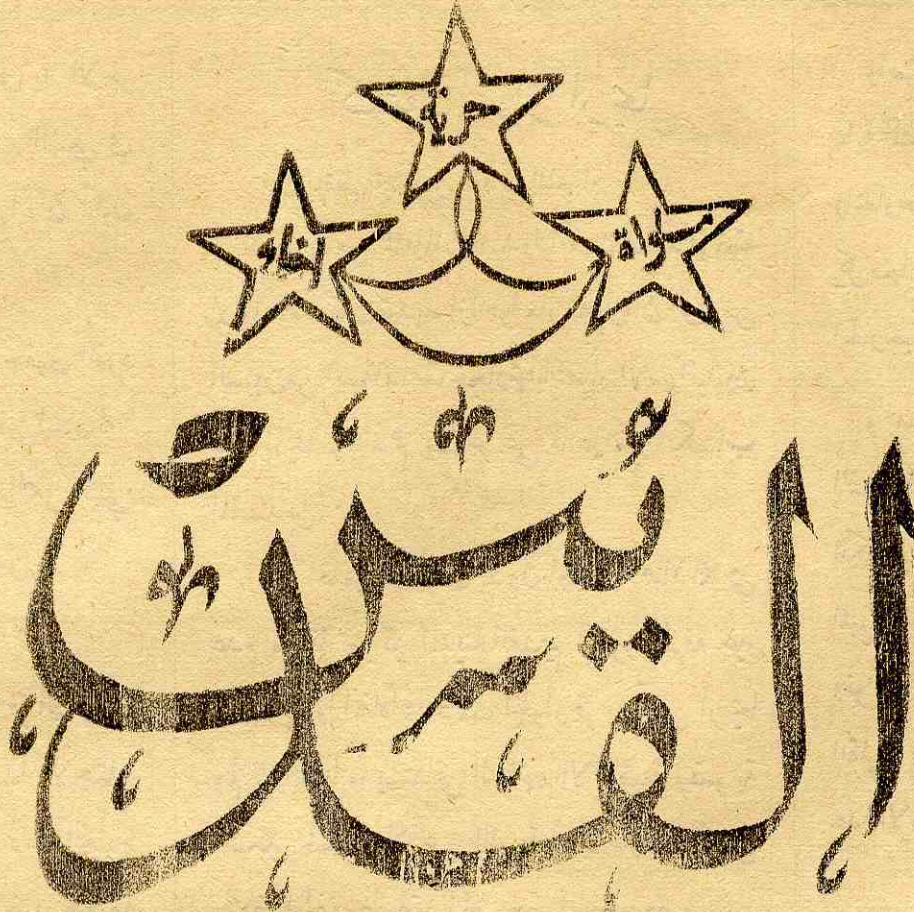 حرية
مساواة اخاء
القدس